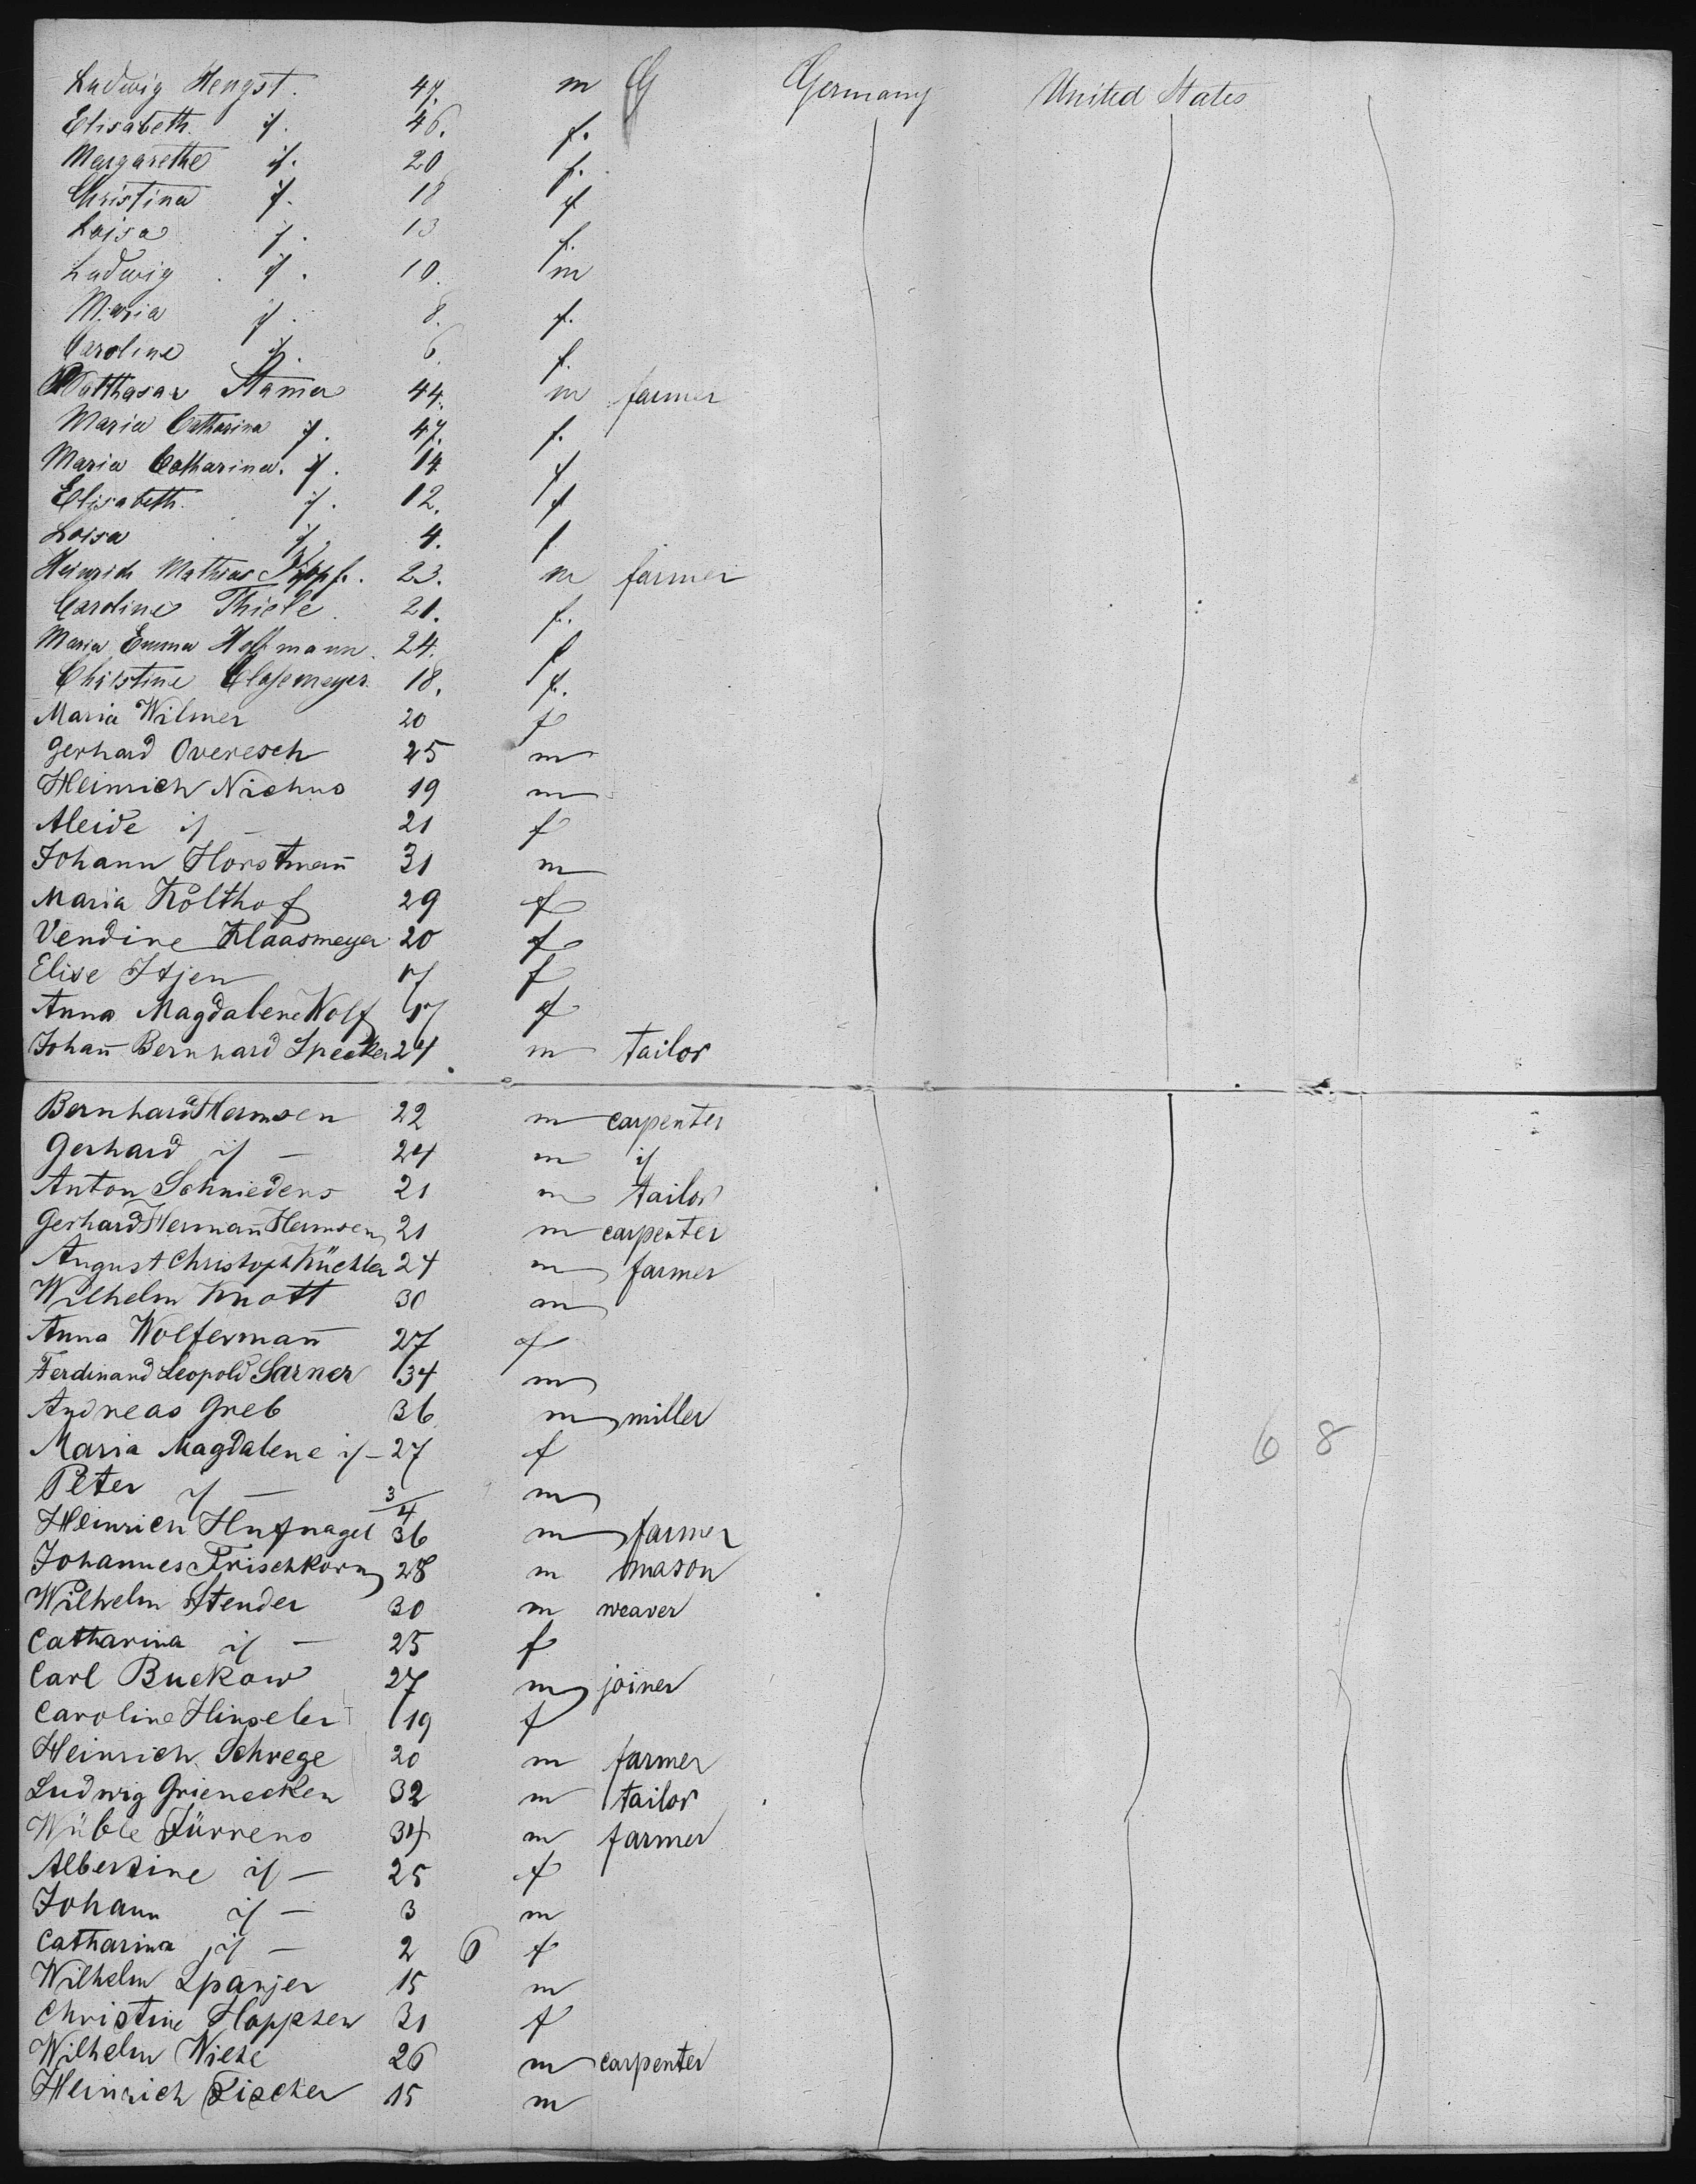 Ludwig Hengst. 47. m Germany United States
Elisabeth. if. 46. f.
Margarethe if. 20 f.
Christina if. 18 f
Loisa if. 13 f.
Ludwig if. 10. m
Maria if. 8. f.
Caroline if. 6. f.
Balthasar Stamer 44. m farmer
Maria Catharina if. 47. f.
Maria Catharina. if. 14 f
Elisabeth. if. 12. f
Loisa if. 4. f
Heinrich Mathias 23. m farmer
Caroline Thiele 21. f.
Maria Emma Hoffmann. 24. f
Christine Clasemeyer 18. f.
Maria Wilmer 20 f
Gerhard Overesch 25 m
Heinrich Niehus 19 m
Aleide if — 21 f
Johann Horstman̄ 31 m
Maria Kolthof 29 f
Vendine Klaasmeyer 20 f
Elise Itjen 17 f
Anna Magdalene Wolf 17 f
Johan̄ Bernhard Specker 24 m tailor
Bernhard Hermsen 22 m carpenter
Gerhard if — 24 m if
Anton Schniedens 21 m tailor
Gerhard Herman̄ Hermsen 21 m carpenter
August Christoph Küchler 24 m farmer
Wilhelm Knott 30 m
Anna Wolferman̄ 27 f
Ferdinand Leopold Sarner 34 m
Andreas Greb 36 m miller
Maria Magdalene if — 27 f 6 8
Peter if — 3/4 m
Heinrich Hufnagel 36 m farmer
Johannes Frischkorn 28 m mason
Wilhelm Stender 30 m weaver
Catharina if — 25 f
Carl Buckow 27 m joiner
Caroline Hinseler 19 f
Heinrich Schrege 20 m farmer
Ludwig Grienecken 32 m tailor
Wüble Jürrens 34 m farmer
Albertine if — 25 f
Johann if — 3 m
Catharina if — 2 6 f
Wilhelm Spanjer 15 m
Christine Hoppsen 31 f
Wilhelm Niese 26 m carpenter
Heinrich Fischer 15 m